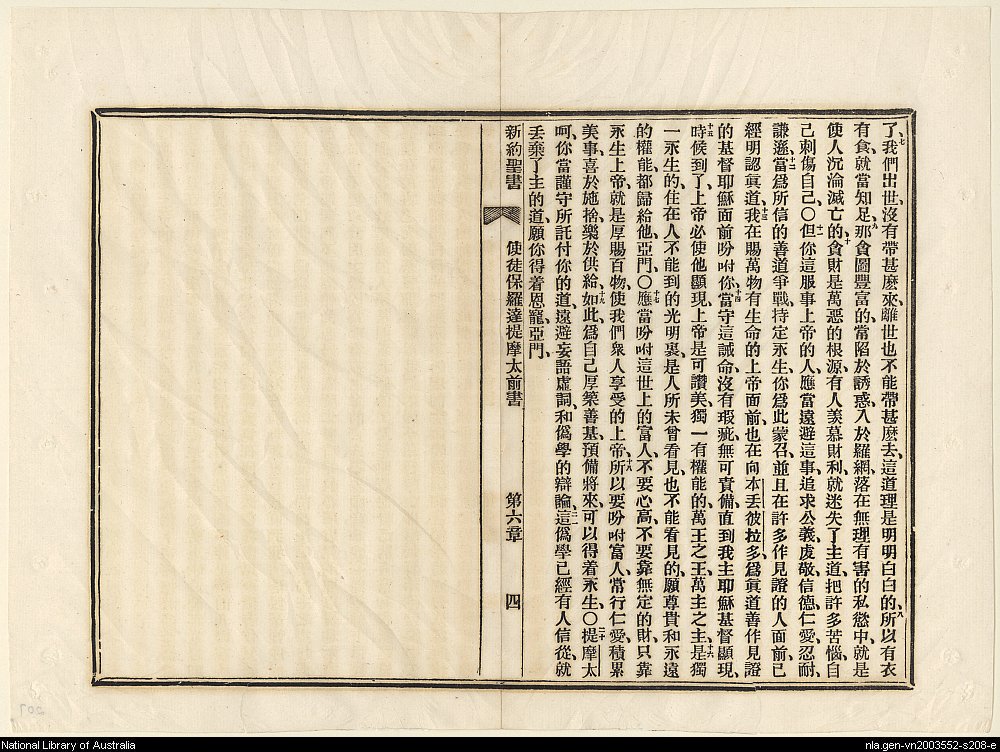 了、七我們出世、沒有帶甚麽來、離世也不能帶甚麽去、這道理是明明白白的、八所以有衣
有食、就當知足、九那貪圖豐富的、當陷於誘惑、入於羅網、落在無理有害的私慾中、就是
使人沉淪滅亡的、十貪財是萬惡的根源、有人羡慕財利、就迷失了主道、把許多苦惱、自
己刺傷自己、〇十一但你這服事上帝的人、應當遠避這事、追求公義、虔敬、信德、仁愛、忍耐、
謙遜、十二當爲所信的善道爭戰、持定永生、你爲此蒙召、並且在許多作見證的人面前、已
經明認眞道、十三我在賜萬物有生命的上帝面前、也在向本丢彼拉多、爲眞道善作見證
的基督耶穌面前吩咐你、十四當守這誡命、沒有瑕疵、無可責備、直到我主耶穌基督顯現、
十五時候到了、上帝必使他顯現、上帝是可讚美、獨一有權能的、萬王之王、萬主之主、十六是獨
一永生的、住在人不能到的光明裏、是人所未曾看見、也不能看見的、願尊貴和永遠
的權能、都歸給他、亞門、〇十七應當吩咐這世上的富人、不要心高、不要靠無定的財、只靠
永生上帝、就是厚賜百物使我們衆人享受的上帝、十八所以要吩咐富人常行仁愛、積累
美事、喜於施捨、樂於供給、十九如此、爲自己厚築善基、預備將來、可以得着永生、〇二十提摩太
呵、你當謹守所託付你的道、遠避妄語虛詞、和僞學的辯論、二一這僞學已經有人信從、就
丢棄了主的道、願你得着恩寵、亞門、
新約聖書 使徒保羅達提摩太前書 第六章 四
207
National Library of Australia
nla.gen-vn2003552-s208-e